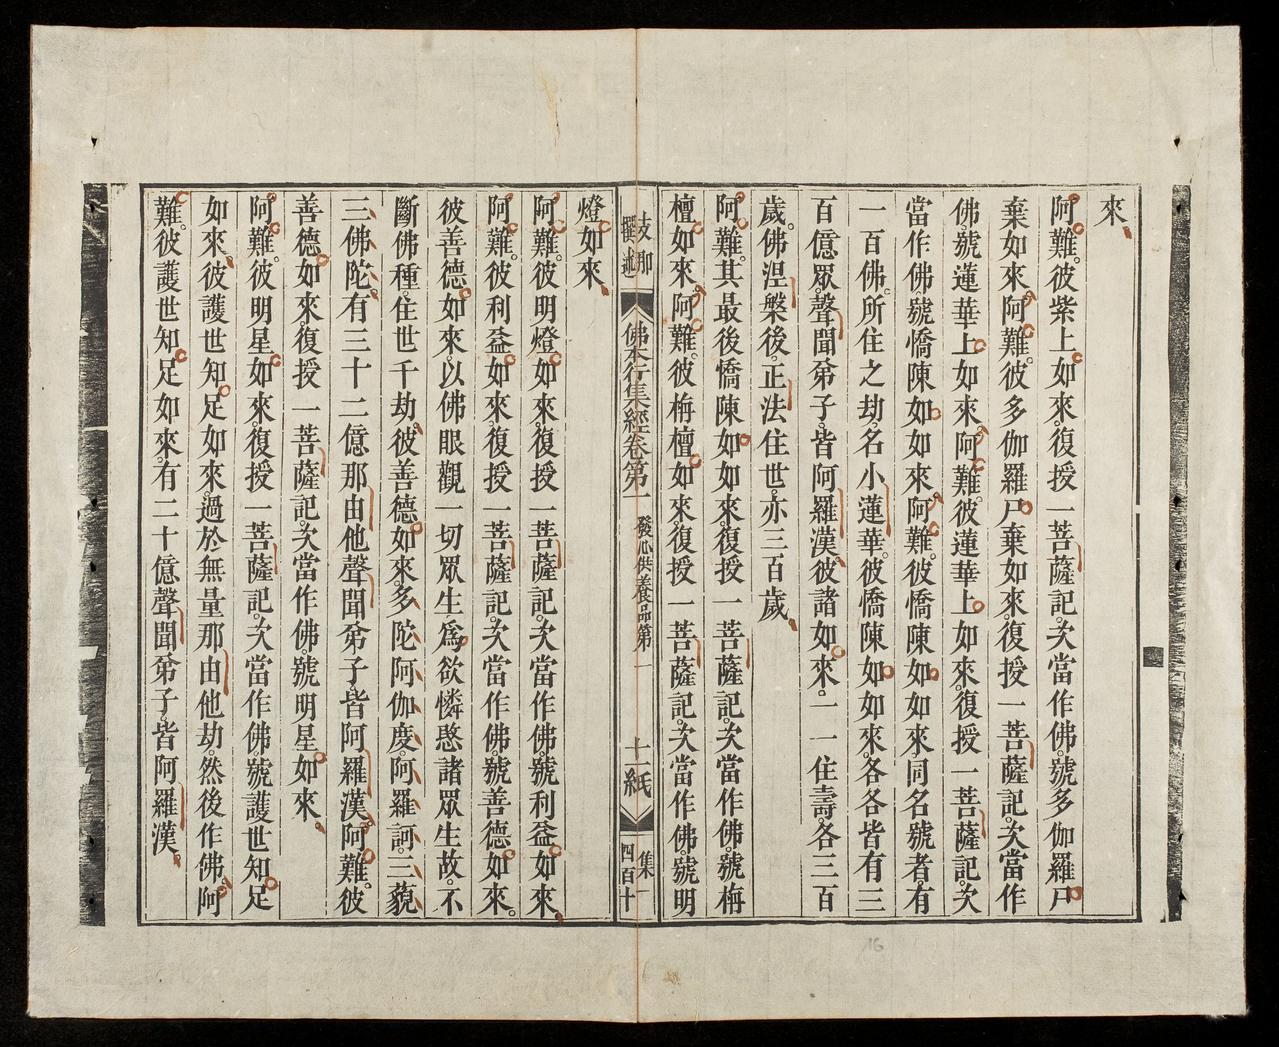 來
阿難。彼紫上如來。復授一菩薩記。次當作佛。號多伽羅尸
棄如來。阿難。彼多伽羅尸棄如來。復授一菩薩記。次當作
佛。號蓮華上如來。阿難。彼蓮華上如來。復授一菩薩記。次
當作佛。號憍陳如如來。阿難。彼憍陳如如來同名號者有
一百佛。所住之劫。名小蓮華。彼憍陳如如來。各各皆有三
百億眾。聲聞弟子。皆阿羅漢。彼諸如來。一一住壽。各三百
歲。佛涅槃後。正法住世。亦三百歲。
阿難。其最後憍陳如如來。復授一菩薩記。次當作佛。號栴
檀如來。阿難。彼栴檀如來。復授一菩薩記。次當作佛。號明
支那
撰述
佛本行集經卷第一 發心供養品第一 十一紙 集一
四百十
燈如來
阿難。彼明燈如來。復授一菩薩記。次當作佛。號利益如來。
阿難。彼利益如來。復授一菩薩記。次當作佛。號善德如來。
彼善德如來。以佛眼觀一切眾生。為欲憐愍諸眾生故。不
斷佛種。住世千劫。彼善德如來。多陀阿伽度。阿羅訶。三藐
三佛陀。有三十二億那由他聲聞弟子。皆阿羅漢。阿難。彼
善德如來。復授一菩薩記。次當作佛。號明星如來
阿難。彼明星如來。復授一菩薩記。次當作佛。號護世知足
如來。彼護世知足如來。過於無量那由他劫。然後作佛。阿
難。彼護世知足如來。有二十億聲聞弟子。皆阿羅漢
16